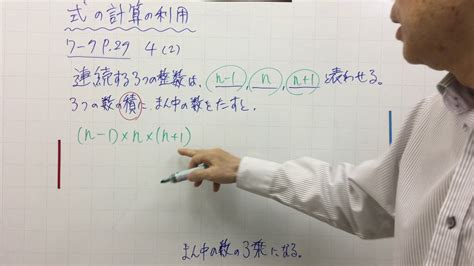 式の計算の利用
ワーク P.29 4 (2)
連続する3つの整数は、n-1, n, n+1 と表わせる。
3つの数の積に、まん中の数をたすと、
(n-1)×n×(n+1)
まん中の数の3乗になる。